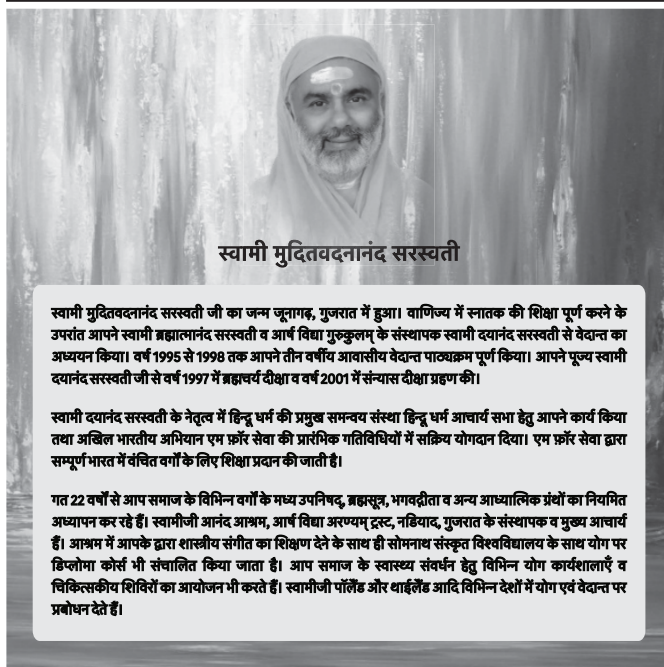 स्वामी मुदितवदनानंद सरस्वती
स्वामी मुदितवदनानंद सरस्वती जी का जन्म जूनागढ़, गुजरात में हुआ। वाणिज्य में स्नातक की शिक्षा पूर्ण करने के
उपरांत आपने स्वामी ब्रह्मात्मानंद सरस्वती व आर्ष विद्या गुरुकुलम् के संस्थापक स्वामी दयानंद सरस्वती से वेदान्त का
अध्ययन किया। वर्ष 1995 से 1998 तक आपने तीन वर्षीय आवासीय वेदान्त पाठ्यक्रम पूर्ण किया। आपने पूज्य स्वामी
दयानंद सरस्वती जी से वर्ष 1997 में ब्रह्मचर्य दीक्षा व वर्ष 2001 में संन्यास दीक्षा ग्रहण की।
स्वामी दयानंद सरस्वती के नेतृत्व में हिन्दू धर्म की प्रमुख समन्वय संस्था हिन्दू धर्म आचार्य सभा हेतु आपने कार्य किया
तथा अखिल भारतीय अभियान एम फ़ॉर सेवा की प्रारंभिक गतिविधियों में सक्रिय योगदान दिया। एम फ़ॉर सेवा द्वारा
सम्पूर्ण भारत में वंचित वर्गों के लिए शिक्षा प्रदान की जाती है।
गत 22 वर्षों से आप समाज के विभिन्न वर्गों के मध्य उपनिषद्, ब्रह्मसूत्र, भगवद्गीता व अन्य आध्यात्मिक ग्रंथों का नियमित
अध्यापन कर रहे हैं। स्वामीजी आनंद आश्रम, आर्ष विद्या अरण्यम् ट्रस्ट, नडियाद, गुजरात के संस्थापक व मुख्य आचार्य
हैं। आश्रम में आपके द्वारा शास्त्रीय संगीत का शिक्षण देने के साथ ही सोमनाथ संस्कृत विश्वविद्यालय के साथ योग पर
डिप्लोमा कोर्स भी संचालित किया जाता है। आप समाज के स्वास्थ्य संवर्धन हेतु विभिन्न योग कार्यशालाएँ व
चिकित्सकीय शिविरों का आयोजन भी करते हैं। स्वामीजी पॉलैंड और थाईलैंड आदि विभिन्न देशों में योग एवं वेदान्त पर
प्रबोधन देते हैं।